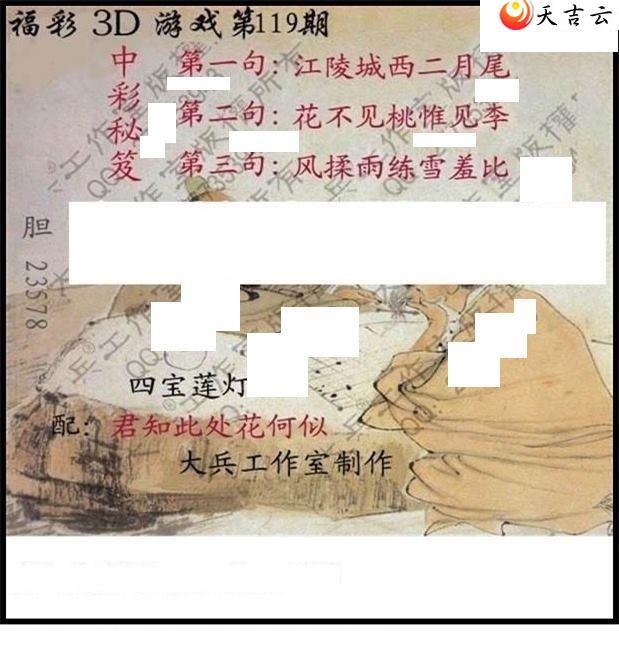 天吉云
福彩 3D 游戏第119期
中彩秘笈
第一句：江陵城西二月尾
第二句：花不见桃惟见李
第三句：风揉雨练雪羞比
胆 23578
四宝莲灯
配：君知此处花何似
大兵工作室制作